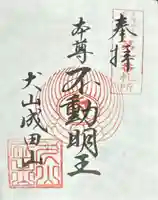 奉拝
本尊
不動明王
犬山成田山